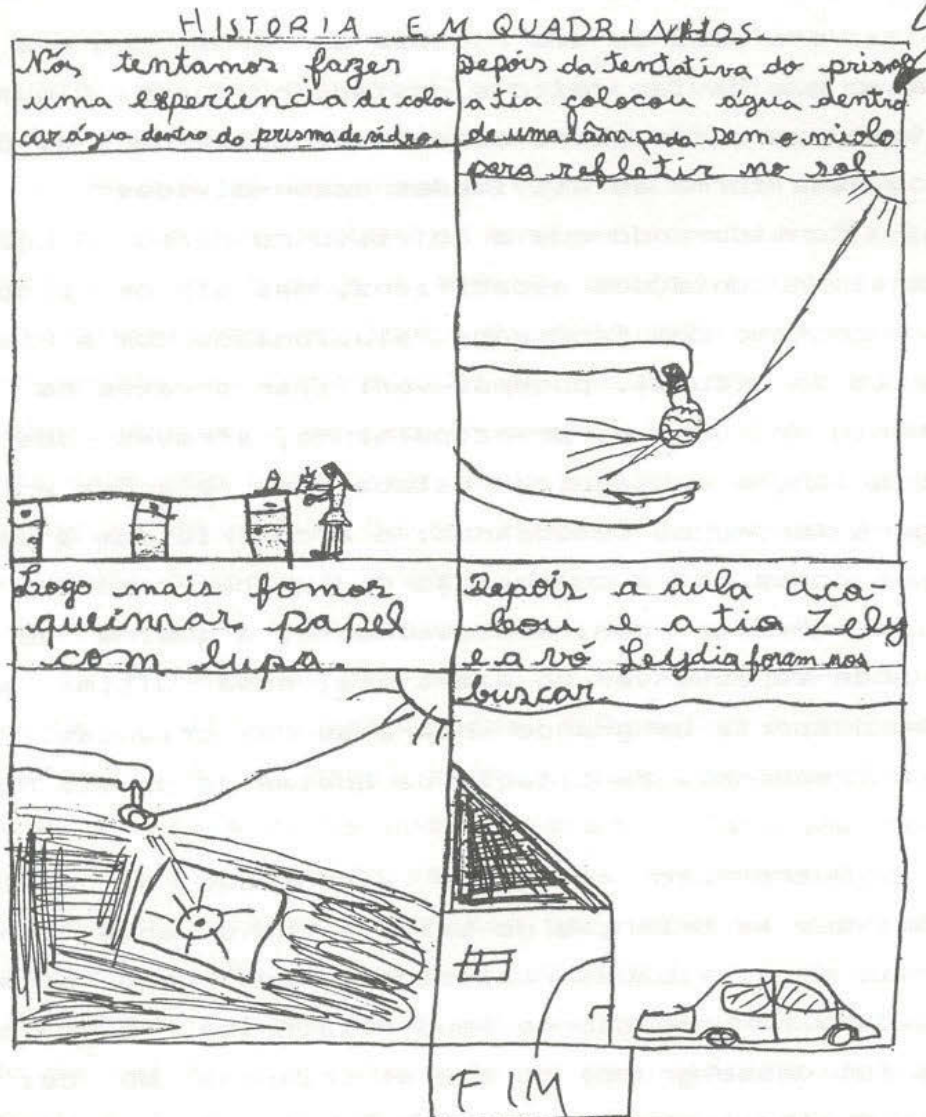 HISTORIA EM QUADRINHOS
Nós tentamos fazer
uma esperiencia de colo
car água dentro do prisma de vidro.
Depois da tentativa do prisma
a tia colocou água dentro
de uma lâmpada sem o miolo
pera refletir no sol.
Logo mais fomos
queimar papel
com lupa.
Depois a aula aca-
bou e a tia Ely
e a vó Leydia foram nos
buscar.
FIM